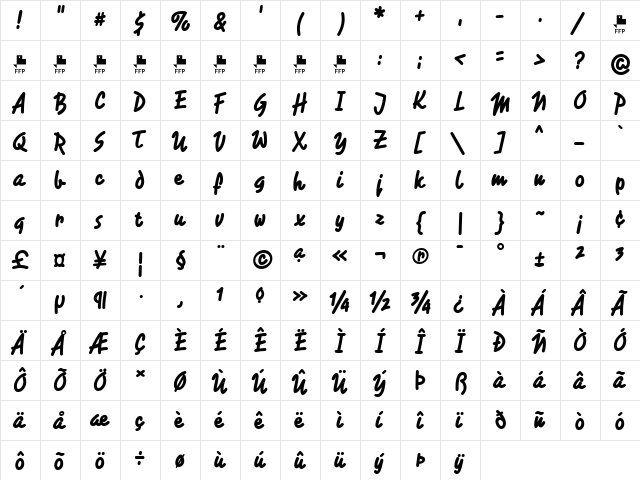 ! " # $ % & ' ( ) * + , - . / FFP
FFP FFP FFP FFP FFP FFP FFP FFP FFP : ; < = > ? @
A B C D E F G H I J K L M N O P
Q R S T U V W X Y Z [ \ ] ^ _ `
a b c d e f g h i j k l m n o p
q r s t u v w x y z { | } ~ ¡ ¢
£ ¤ ¥ ¦ § ¨ © ª « ¬ ® ¯ ° ± ² ³
´ µ ¶ · ¸ ¹ º » ¼ ½ ¾ ¿ À Á Â Ã
Ä Å Æ Ç È É Ê Ë Ì Í Î Ï Ð Ñ Ò Ó
Ô Õ Ö × Ø Ù Ú Û Ü Ý Þ ß à á â ã
ä å æ ç è é ê ë ì í î ï ð ñ ò ó
ô õ ö ÷ ø ù ú û ü ý þ ÿ